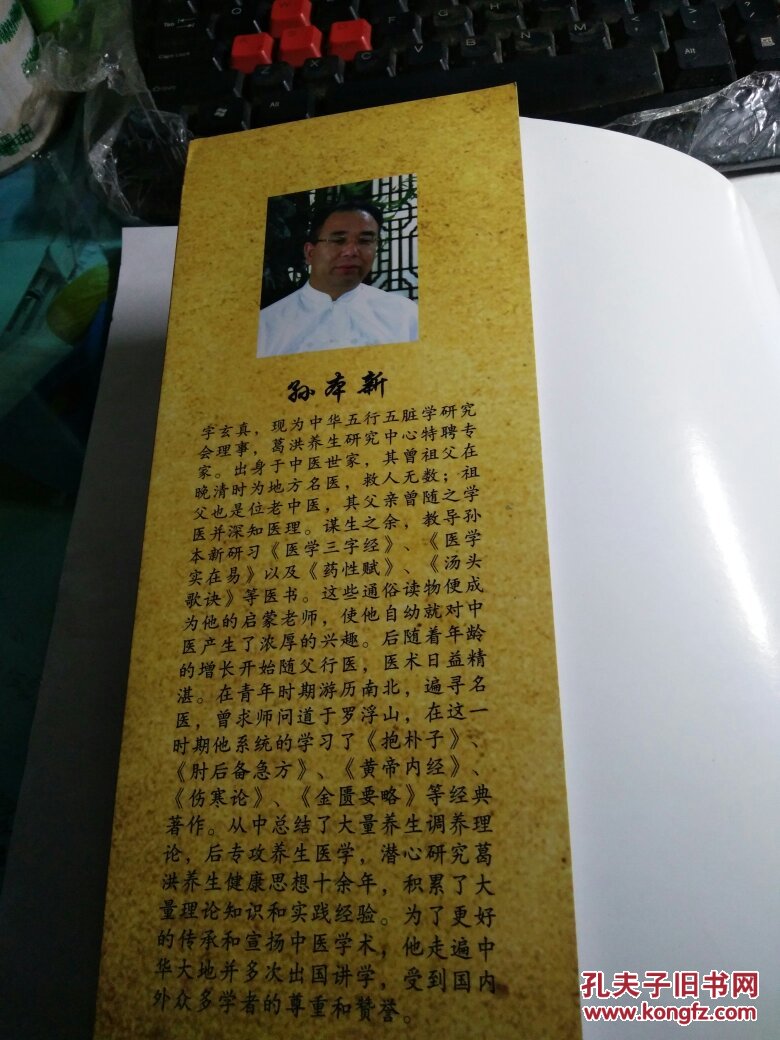 孙本新
字玄真，现为中华五行五脏学研究
会理事，葛洪养生研究中心特聘专
家。出身于中医世家，其曾祖父在
晚清时为地方名医，救人无数；祖
父也是位老中医，其父亲曾随之学
医并深知医理。谋生之余，教导孙
本新研习《医学三字经》、《医学
实在易》以及《药性赋》、《汤头
歌诀》等医书。这些通俗读物便成
为他的启蒙老师，使他自幼就对中
医产生了浓厚的兴趣。后随着年龄
的增长开始随父行医，医术日益精
湛。在青年时期游历南北，遍寻名
医，曾求师问道于罗浮山，在这一
时期他系统的学习了《抱朴子》、
《肘后备急方》、《黄帝内经》、
《伤寒论》、《金匮要略》等经典
著作。从中总结了大量养生调养理
论，后专攻养生医学，潜心研究葛
洪养生健康思想十余年，积累了大
量理论知识和实践经验。为了更好
的传承和宣扬中医学术，他走遍中
华大地并多次出国讲学，受到国内
外众多学者的尊重和赞誉。
孔夫子旧书网
www.kongfz.com